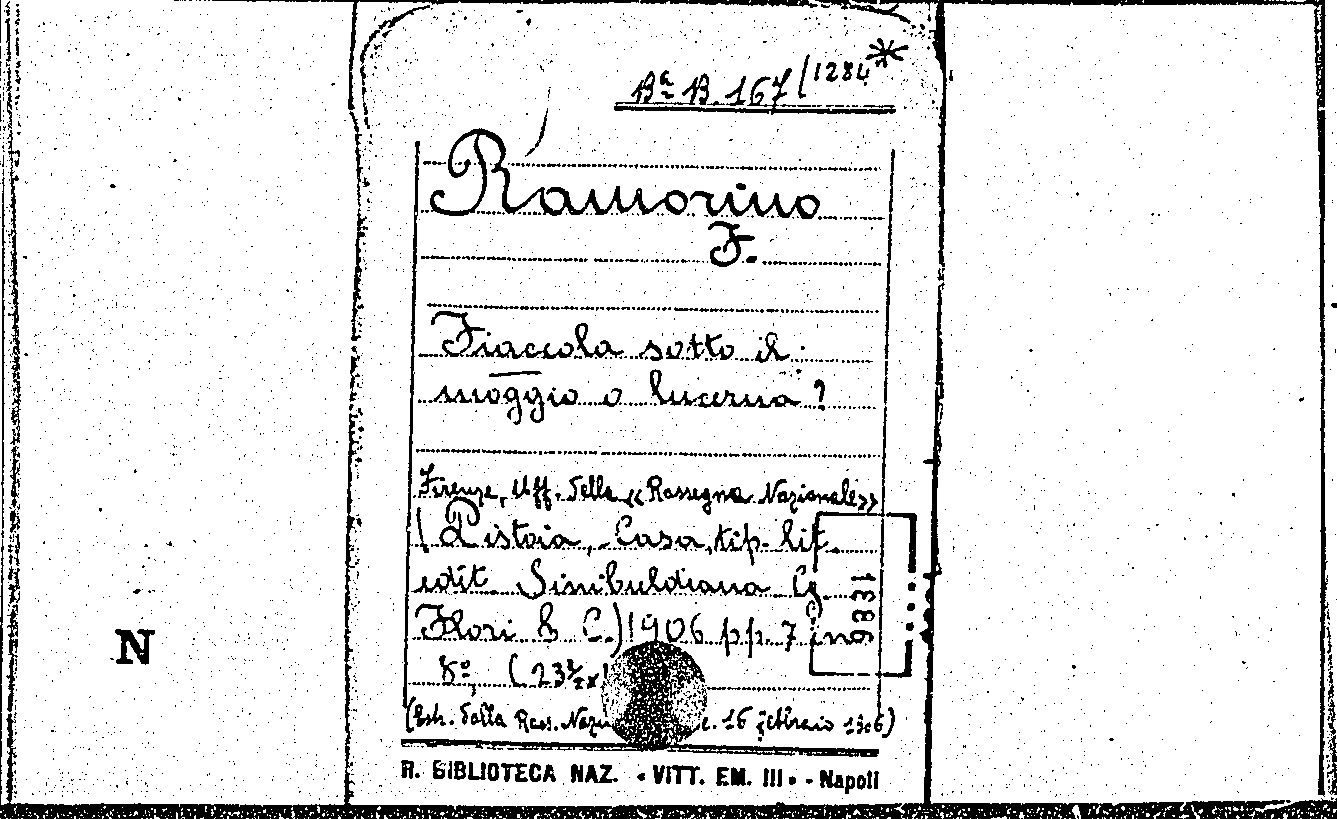 Bª B. 167/1284*
Ramorino
F.
Fiaccola sotto il
moggio o lucerna?
Firenze, Uff. della «Rassegna Nazionale»
(Pistoia, Casa, tip. lit.
edit. Sinibuldiana G.
Flori & C.) 1906 pp. 7 in
8º, (23½x
(Estr. dalla Rass. Nazi 16 febbraio 1906)
R. BIBLIOTECA NAZ. • VITT. EM. III • - Napoli
N